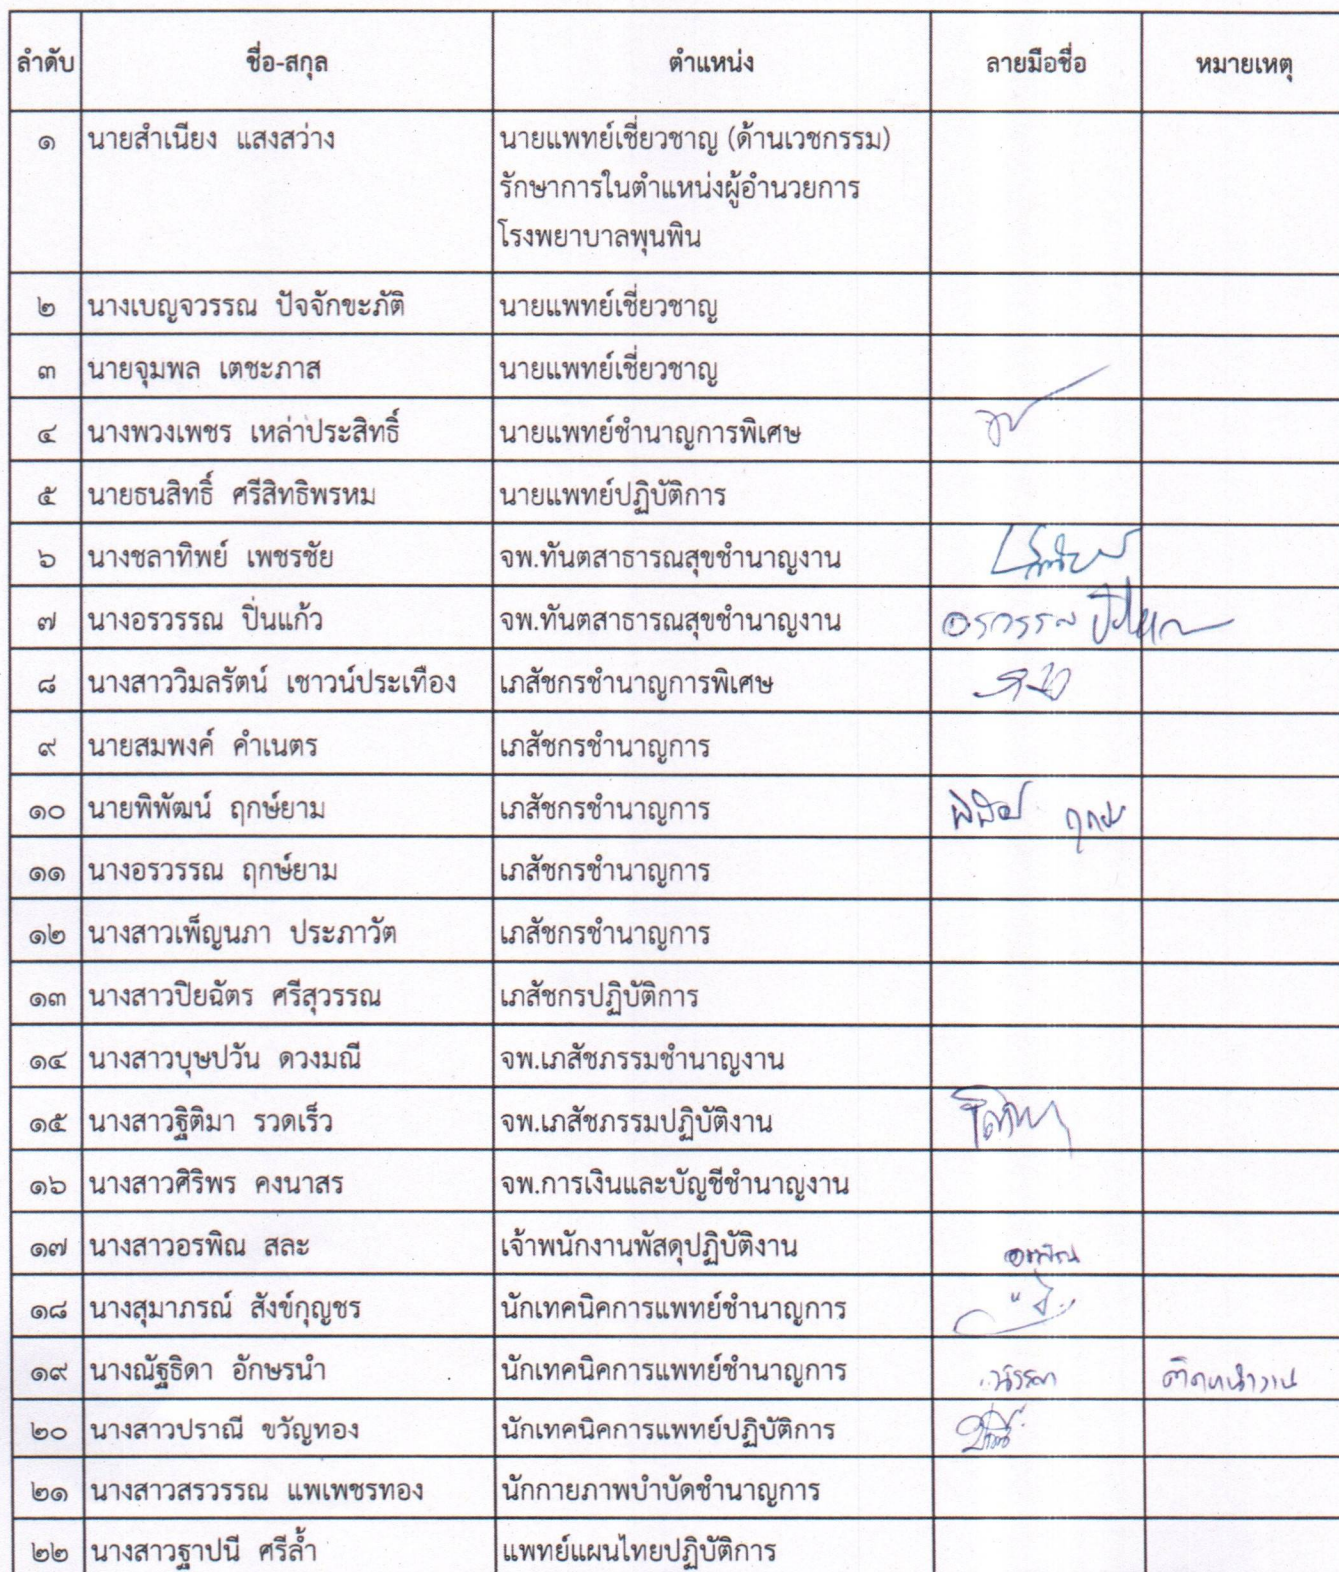 ลำดับ ชื่อ-สกุล ตำแหน่ง ลายมือชื่อ หมายเหตุ
๑ นายสำเนียง แสงสว่าง นายแพทย์เชี่ยวชาญ (ด้านเวชกรรม)
รักษาการในตำแหน่งผู้อำนวยการ
โรงพยาบาลพุนพิน
๒ นางเบญจวรรณ ปัจจักขะภัติ นายแพทย์เชี่ยวชาญ
๓ นายจุมพล เตชะภาส นายแพทย์เชี่ยวชาญ
๔ นางพวงเพชร เหล่าประสิทธิ์ นายแพทย์ชำนาญการพิเศษ
๕ นายธนสิทธิ์ ศรีสิทธิพรหม นายแพทย์ปฏิบัติการ
๖ นางชลาทิพย์ เพชรชัย จพ.ทันตสาธารณสุขชำนาญงาน
๗ นางอรวรรณ ปิ่นแก้ว จพ.ทันตสาธารณสุขชำนาญงาน อรวรรณ
๘ นางสาววิมลรัตน์ เชาวน์ประเทือง เภสัชกรชำนาญการพิเศษ
๙ นายสมพงค์ คำเนตร เภสัชกรชำนาญการ
๑๐ นายพิพัฒน์ ฤกษ์ยาม เภสัชกรชำนาญการ
๑๑ นางอรวรรณ ฤกษ์ยาม เภสัชกรชำนาญการ
๑๒ นางสาวเพ็ญนภา ประภาวัต เภสัชกรชำนาญการ
๑๓ นางสาวปิยฉัตร ศรีสุวรรณ เภสัชกรปฏิบัติการ
๑๔ นางสาวบุษปวัน ดวงมณี จพ.เภสัชภรรมชำนาญงาน
๑๕ นางสาวฐิติมา รวดเร็ว จพ.เภสัชภรรมปฏิบัติงาน
๑๖ นางสาวศิริพร คงนาสร จพ.การเงินและบัญชีชำนาญงาน
๑๗ นางสาวอรพิณ สละ เจ้าพนักงานพัสดุปฏิบัติงาน อรพิณ
๑๘ นางสุมาภรณ์ สังข์กุญชร นักเทคนิคการแพทย์ชำนาญการ
๑๙ นางณัฐธิดา อักษรนำ นักเทคนิคการแพทย์ชำนาญการ
๒๐ นางสาวปราณี ขวัญทอง นักเทคนิคการแพทย์ปฏิบัติการ
๒๑ นางสาวสรวรรณ แพเพชรทอง นักกายภาพบำบัดชำนาญการ
๒๒ นางสาวฐาปนี ศรีล้ำ แพทย์แผนไทยปฏิบัติการ